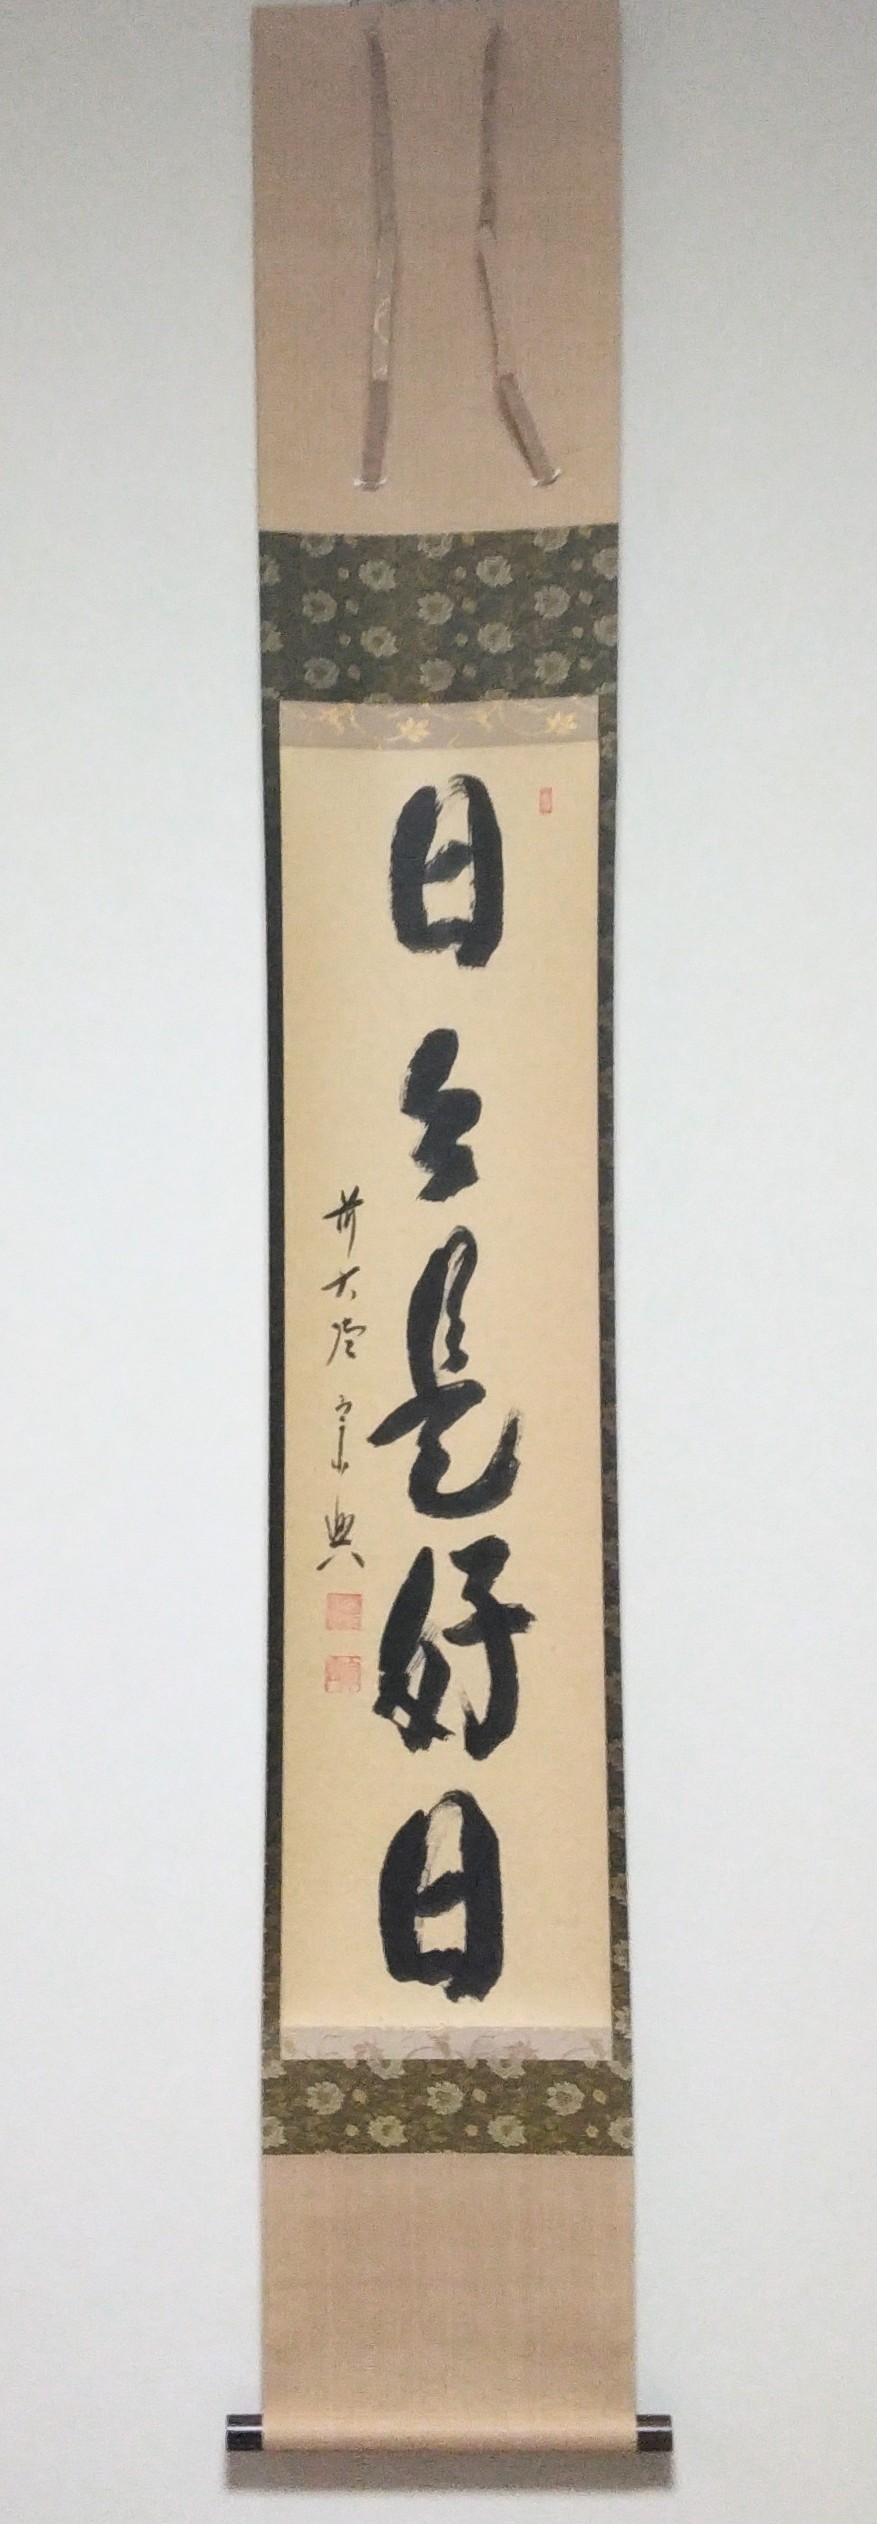 日々是好日
前大徳 宗典